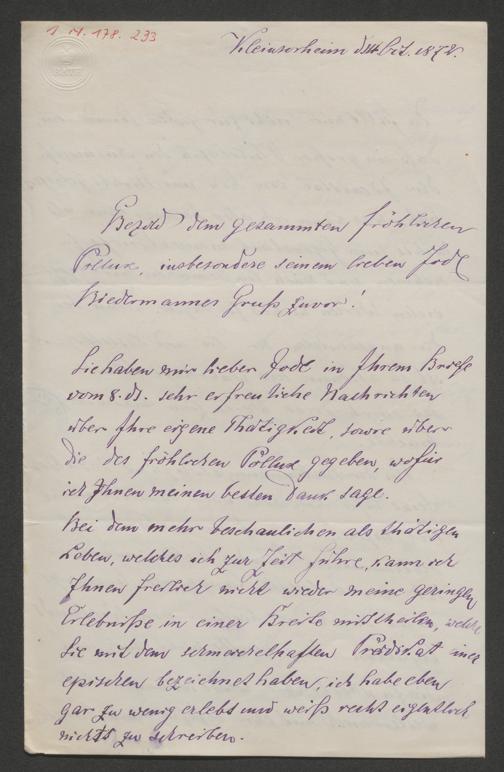 1. N. 178. 233
Kleinsorheim d. 14 Oct. 1872.
Bezold dem gesammten fröhlichen
Pollux, insbesondere seinem lieben Jodl
Biedermannes Gruß zuvor!
Sie haben mir lieber Jodl in Ihrem Briefe
vom 8. ds. sehr erfreuliche Nachrichten
über Ihre eigene Thätigkeit, sowie über
die des fröhlichen Pollux gegeben, wofür
ich Ihnen meinen besten Dank sage.
Bei dem mehr beschaulichen als thätigen
Leben, welches ich zur Zeit führe, kann ich
Ihnen freilich nicht wieder meine geringen
Erlebniße in einer Breite mittheilen, welche
Sie mit dem schmeichelhaften Prädikat einer
epischen bezeichnet haben, ich habe eben
gar zu wenig erlebt und weiß recht eigentlich
nichts zu schreiben.